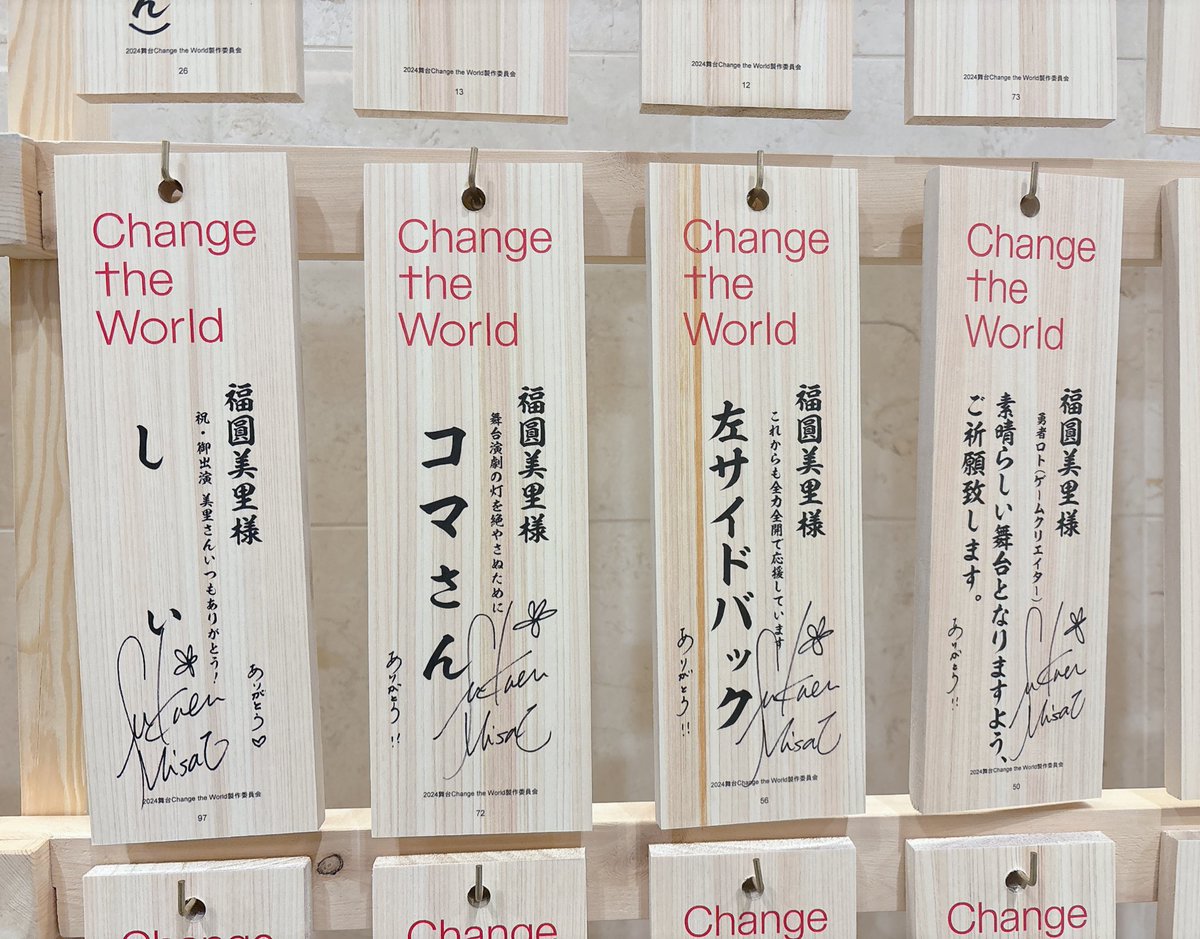 ん
2024舞台Change the World製作委員会
26
2024舞台Change the World製作委員会
13
2024舞台Change the World製作委員会
12
2024舞台Change the World製作委員会
73
Change
the
World
福圓美里様
祝・御出演 美里さんいつもありがとう！
しい
ありがとう♡
Fukuen
Misato
2024舞台Change the World製作委員会
97
Change
the
World
福圓美里様
舞台演劇の灯を絶やさぬために
コマさん
ありがとう!!
Fukuen
Misato
2024舞台Change the World製作委員会
72
Change
the
World
福圓美里様
これからも全力全開で応援しています
左サイドバック
ありがとう!!
Fukuen
Misato
2024舞台Change the World製作委員会
56
Change
the
World
福圓美里様
勇者ロト（ゲームクリエイター）
素晴らしい舞台となりますよう、
ご祈願致します。
ありがとう!!
Fukuen
Misato
2024舞台Change the World製作委員会
50
Change
Change
Change
Change